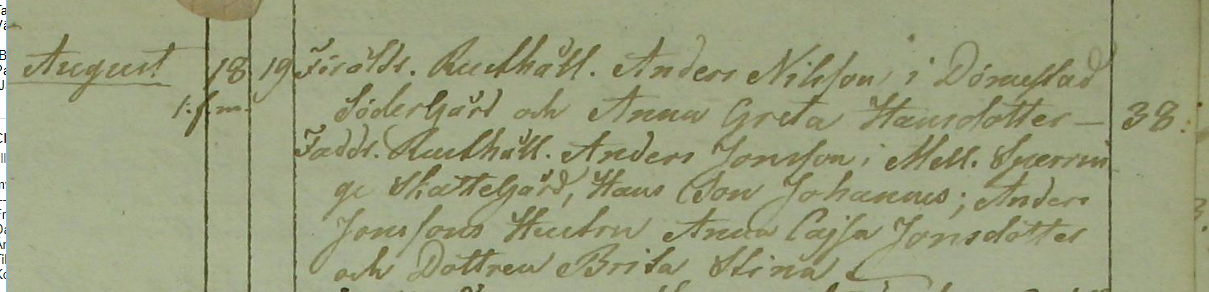 August 18 19 Föräldr. Rusthåll. Anders Nilsson i Dömestad
1. f. m. Södergård och Anna Greta Hansdotter — 38.
Faddr. Rusthåll. Anders Jonsson i Mell. Sperrin
ge Skattegård, Hans Son Johannes; Anders
Jonssons Hustru Anna Cajsa Jonsdotter
och Dottren Brita Stina